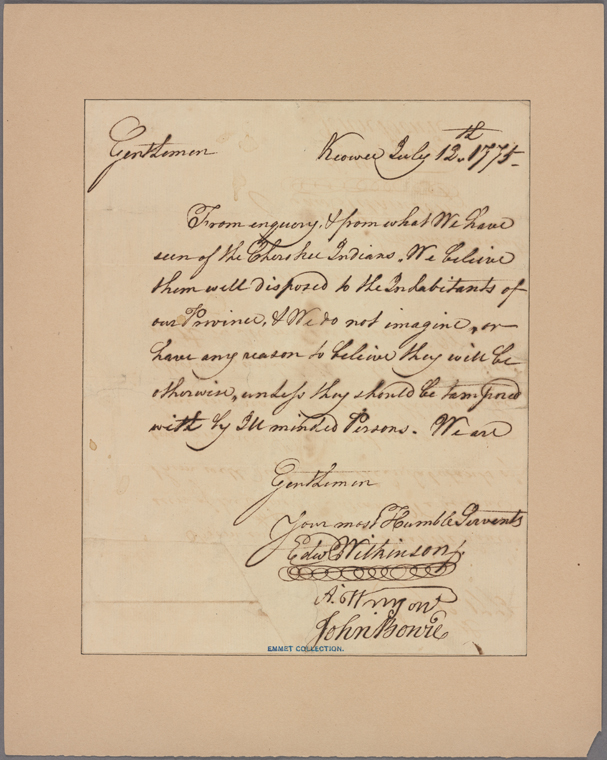 Gentlemen Keowee July 12th. 1775.
From enquery, & from what We have
seen of the Cherokee Indians. We believe
them well disposed to the Inhabitants of
our Province, & We do not imagine, or
have any reason to believe they will be
otherwise, unless they should be tampered
with by Ill minded Persons. We are
Gentlemen
Your most Humble Servants
Edwd Wilkinson
John Bowie
EMMET COLLECTION.